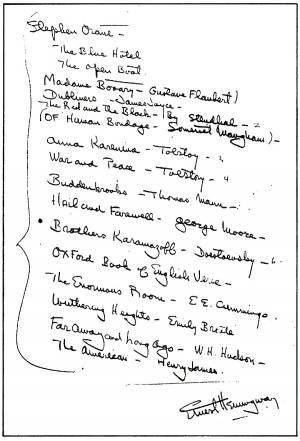 Stephen Crane -
The Blue Hotel
The Open Boat
Madame Bovary - Gustave Flaubert)
Dubliners - James Joyce -
The Red and the Black - (By Stendhal -
(Of Human Bondage - Somerset Maugham) -
Anna Karenina - Tolstoy -
War and Peace - Tolstoy -
Buddenbrooks - Thomas Mann -
Hail and Farewell - George Moore -
Brothers Karamazoff - Dostoevsky -
Oxford Book of English Verse -
The Enormous Room - E.E. Cummings.
Wuthering Heights - Emily Bronte
Far Away and Long Ago - W.H. Hudson -
The American - Henry James.
Ernest Hemingway